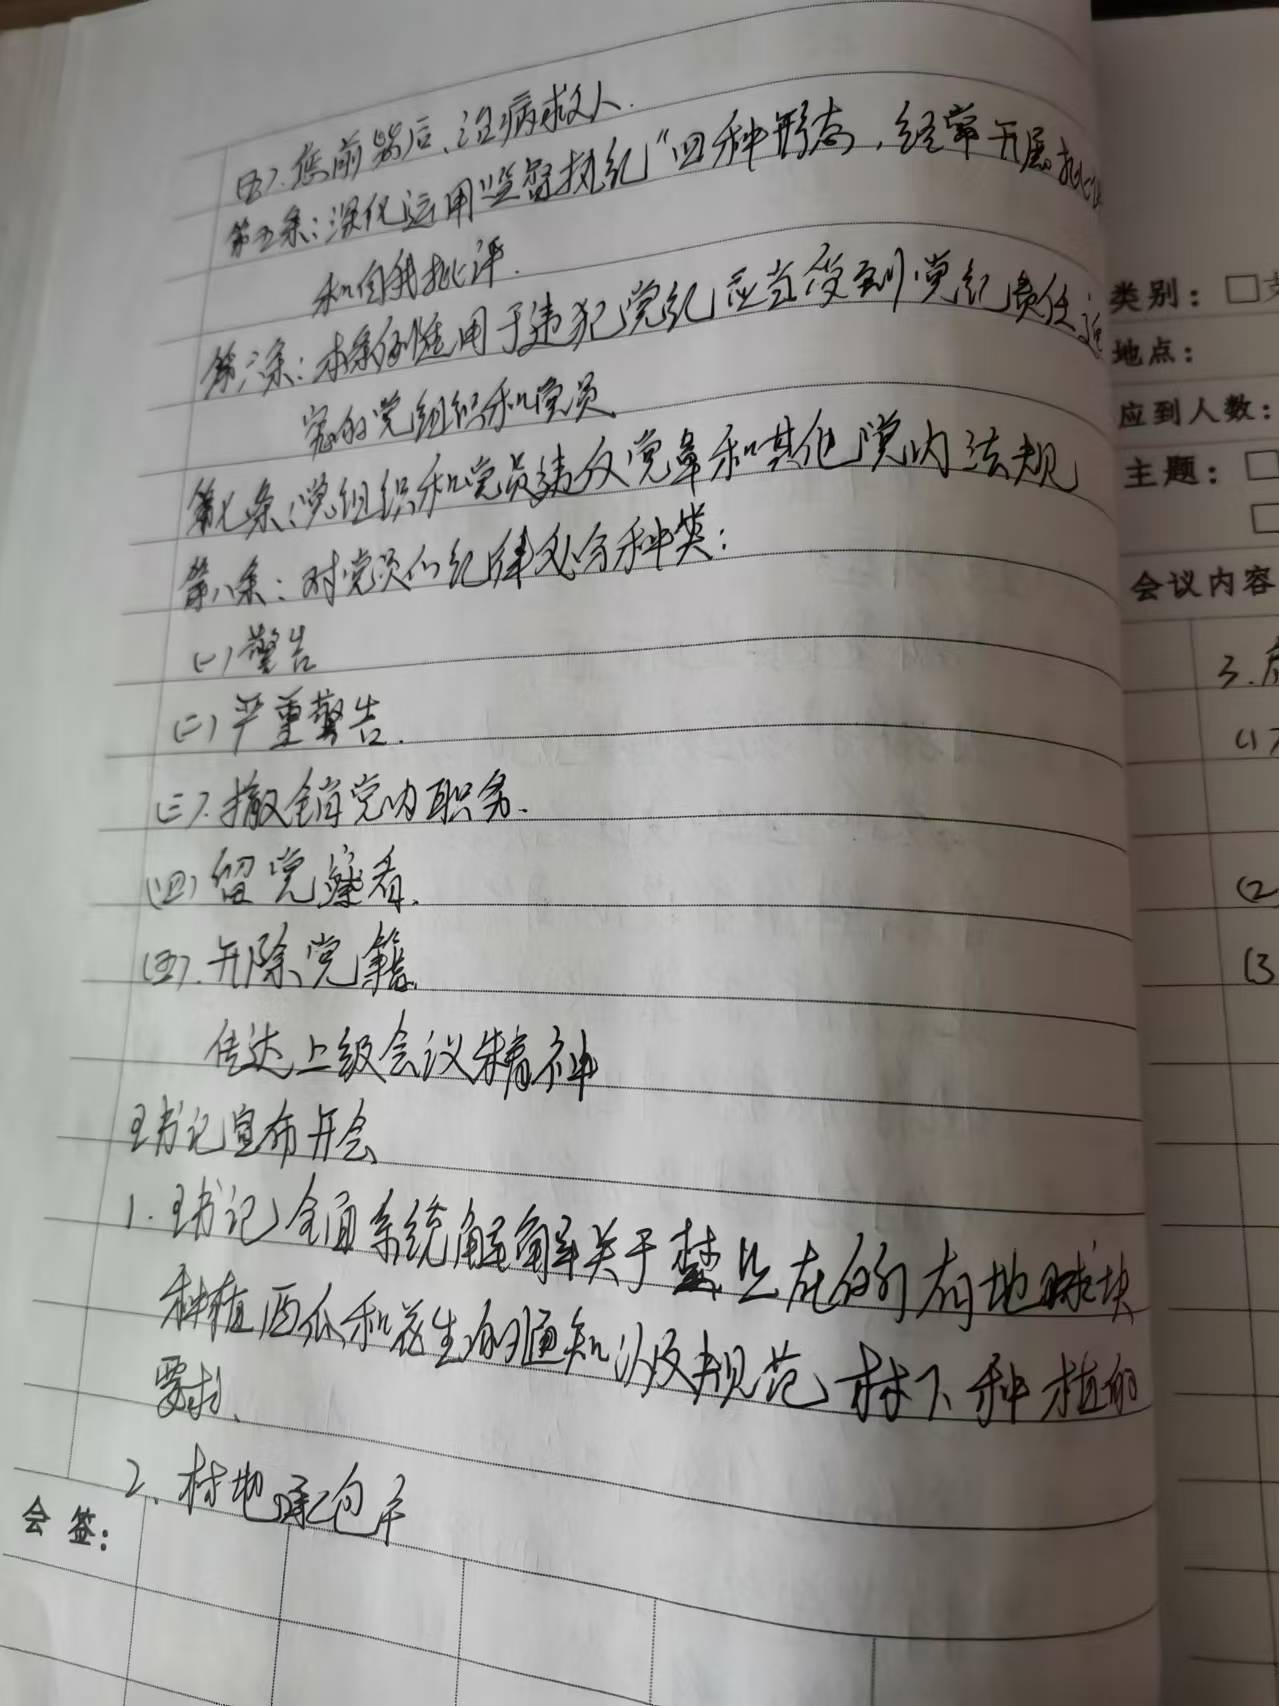 (五).惩前毖后、治病救人.
第五条:深化运用监督执纪"四种形态,经常开展批评
和自我批评.
第六条:本条例适用于违犯党纪应当受到党纪责任追
究的党组织和党员
第七条:党组织和党员违反党章和其他党内法规
第八条:对党员的纪律处分种类:
(一)警告
(二)严重警告.
(三).撤销党内职务.
(四)留党察看.
(五).开除党籍.
传达上级会议精神
王书记宣布开会
1.王书记全面系统解解关于禁止在的有地块
种植西瓜和花生的通知以及规范林下种植的
要求、
2、林地承包户
会签:
类别:□
地点:
应到人数:
主题:□
□
会议内容
3.
(1)
(2
(3